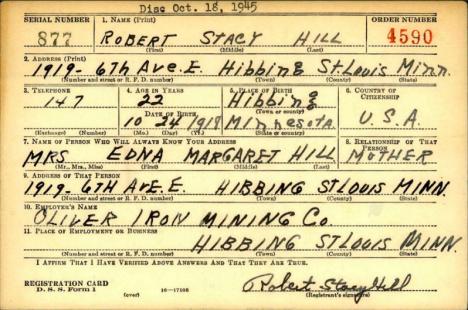 Disc Oct. 18, 1945
SERIAL NUMBER 1. NAME (Print) ORDER NUMBER
877 ROBERT STACY HILL 4590
(First) (Middle) (Last)
2. ADDRESS (Print)
1919- 6TH AVE. E. HIBBING ST LOUIS MINN.
(Number and street or R. F. D. number) (Town) (County) (State)
3. TELEPHONE 4. AGE IN YEARS 5. PLACE OF BIRTH 6. COUNTRY OF CITIZENSHIP
147 22 Hibbing
DATE OF BIRTH (Town or county)
10 24 1918 MINNESOTA U.S.A.
(Exchange) (Number) (Mo.) (Day) (Yr.) (State or country)
7. NAME OF PERSON WHO WILL ALWAYS KNOW YOUR ADDRESS 8. RELATIONSHIP OF THAT PERSON
MRS EDNA MARGARET HILL MOTHER
(Mr., Mrs., Miss) (First) (Middle) (Last)
9. ADDRESS OF THAT PERSON
1919- 6TH AVE. E. HIBBING ST LOUIS MINN
(Number and street or R. F. D. number) (Town) (County) (State)
10. EMPLOYER'S NAME
OLIVER IRON MINING CO.
11. PLACE OF EMPLOYMENT OR BUSINESS
HIBBING ST LOUIS MINN.
(Number and street or R. F. D. number) (Town) (County) (State)
I AFFIRM THAT I HAVE VERIFIED ABOVE ANSWERS AND THAT THEY ARE TRUE.
REGISTRATION CARD
D. S. S. Form 1 (over) 16—17105
Robert Stacy Hill
(Registrant's signature)